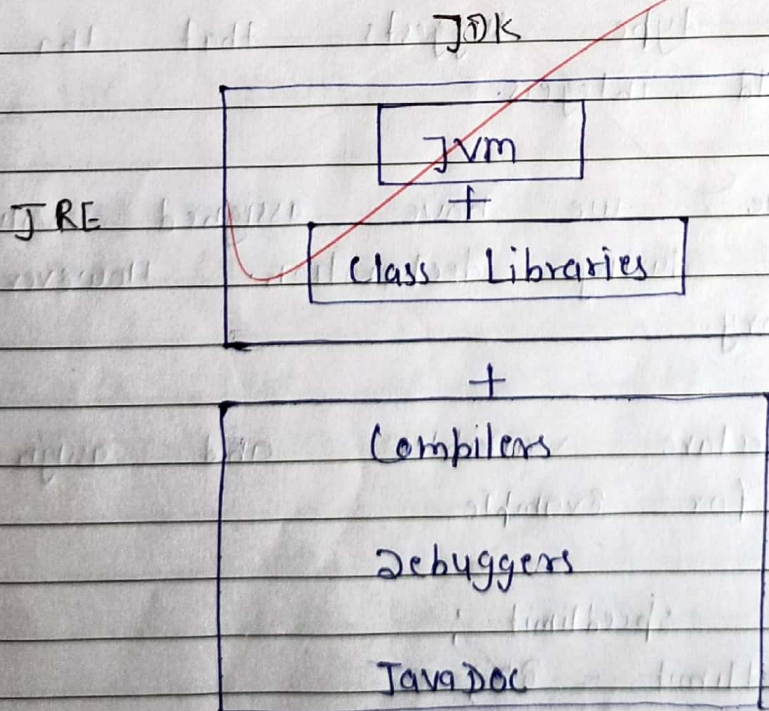 JDK
JVM
+
JRE
Class Libraries
+
Compilers
Debuggers
JavaDOC